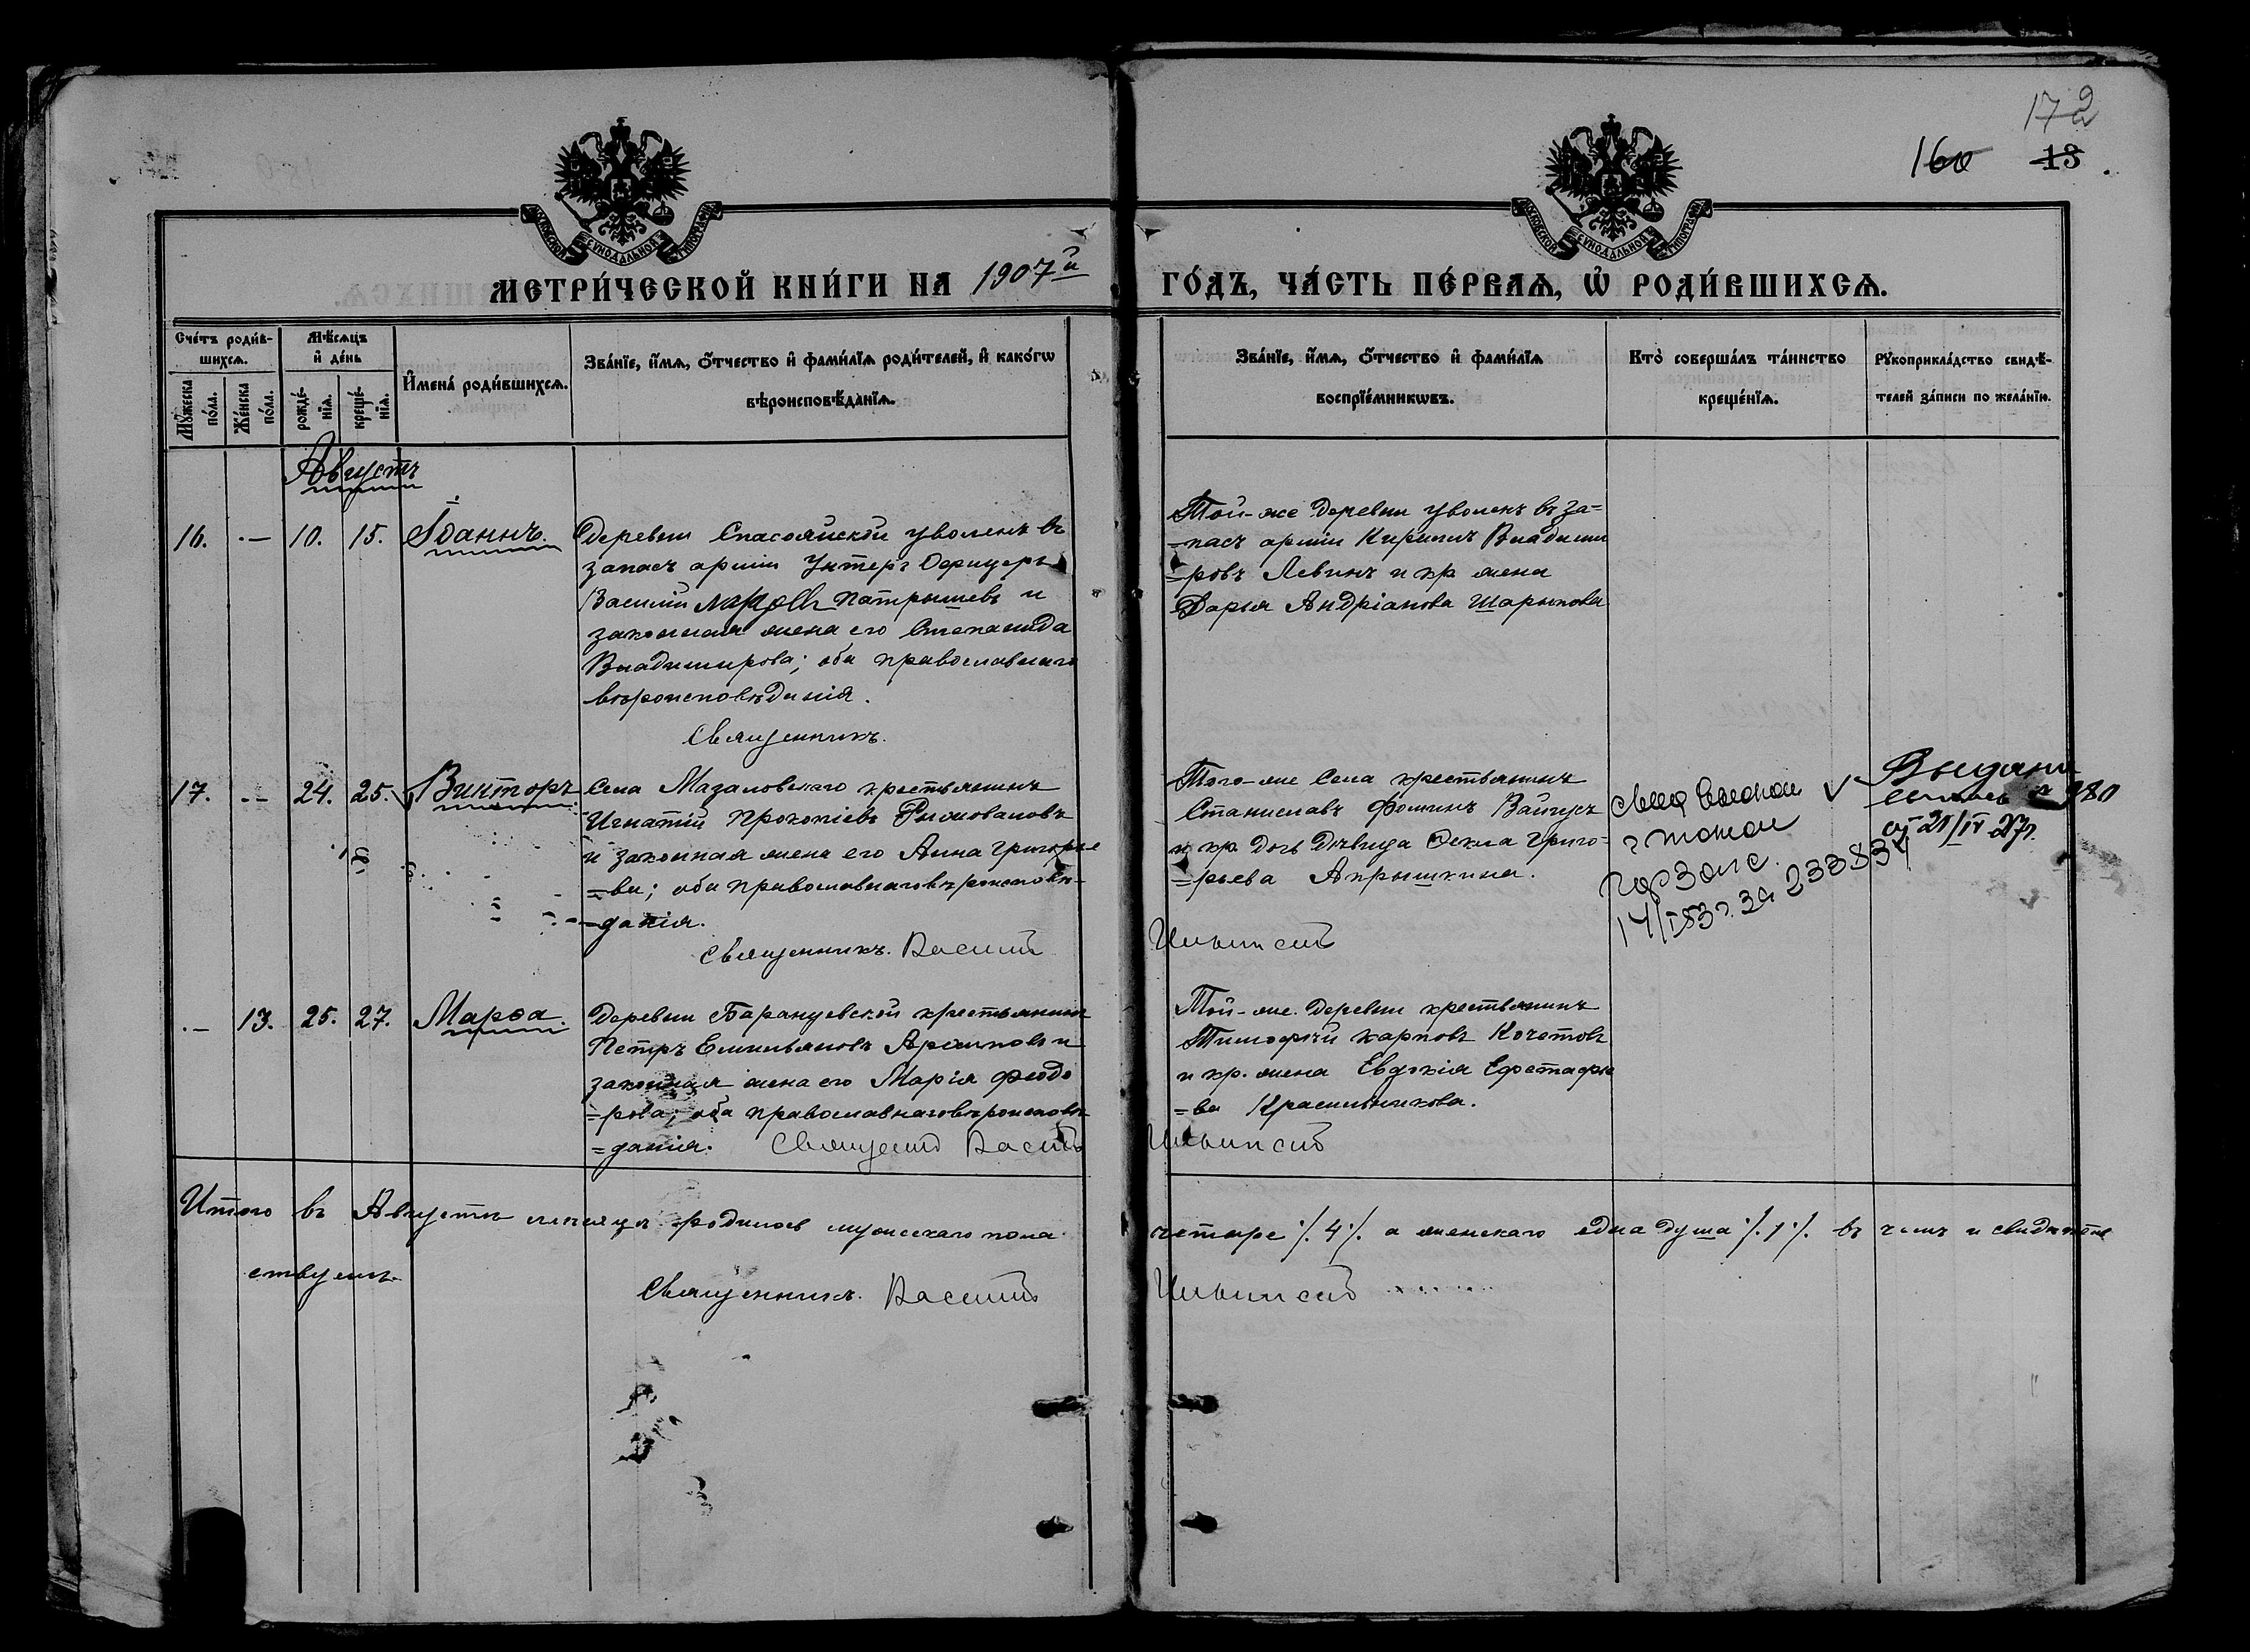 172
160 13
МОСКОВСКОЙ СѴНОДАЛЬНОЙ ТИПОГРАФІИ
МОСКОВСКОЙ СѴНОДАЛЬНОЙ ТИПОГРАФІИ
МЕТРИ́ЧЕСКОЙ КНИ́ГИ НА 1907й ГО́ДЪ, ЧА́СТЬ ПЕ́РВАѦ, Ѡ҆ РОДИ́ВШИХСѦ.
Сче́тъ роди́в-
шихсѧ.
Мꙋ́жеска по́ла.
Же́нска по́ла.
Мѣ́сѧцъ
и҆ де́нь
рожде́-
нїѧ.
креще́-
нїѧ.
И҆мена̀ роди́вшихсѧ.
Зва́нїе, и҆́мѧ, ѻ҆́тчество и҆ фами́лїѧ роди́телей, и҆ како́гѡ
вѣроисповѣ́данїѧ.
Зва́нїе, и҆́мѧ, ѻ҆́тчество и҆ фами́лїѧ
воспрїе́мникѡвъ.
Кто̀ соверша́лъ та́инство
креще́нїѧ.
Рꙋкоприкла́дство свидѣ́-
телей за́писи по жела́нїю.
Августъ
16. – 10. 15. Іоаннъ.
Деревни Спасоянской уволенъ въ
запасъ арміи Унтеръ Офицеръ
Василій Патрышевъ и
законная жена его Степанида
Владимирова; оба православнаго
вѣроисповѣданія.
Священникъ.
Той-же деревни уволенъ въ за=
=пасъ арміи Кириллъ Владими
=ровъ Левинъ и кр. жена
Дарья Андріанова Шарыпова
17. – 24. 25. Викторъ
Села Мазаловскаго крестьянинъ
Игнатій Прокопіевъ
и законная жена его Анна Григорье
=ва; оба православнаго вѣроисповѣ-
=данія.
Священникъ. Василій Ильинскій
Того-же Села крестьянинъ
Станиславъ Ѳоминъ Вайтусъ
и кр. дочь дѣвица Ѳекла Григо-
=рьева Акрышкина.
горзагс
14/I 53 г. за 233834
Выдана
980
от 21/IV 27г.
– 13. 25. 27. Марѳа.
Деревни Баранцевской крестьянинъ
Петръ Емельяновъ и
законная жена его Марія Ѳеодо
=рова; оба православнаго вѣроисповѣ
=данія. Священник Василій Ильинскій
Той-же деревни крестьянинъ
Тимофѣй Карповъ Кочетовъ
и кр. жена Евдокія
=ва Красильникова.
Итого въ Августѣ мѣсяцѣ родилось мужескаго пола четыре ./. 4 ./. а женскаго одна душа ./. 1 ./. въ чемъ и свидѣтель
ствуемъ.
Священникъ. Василій Ильинскій